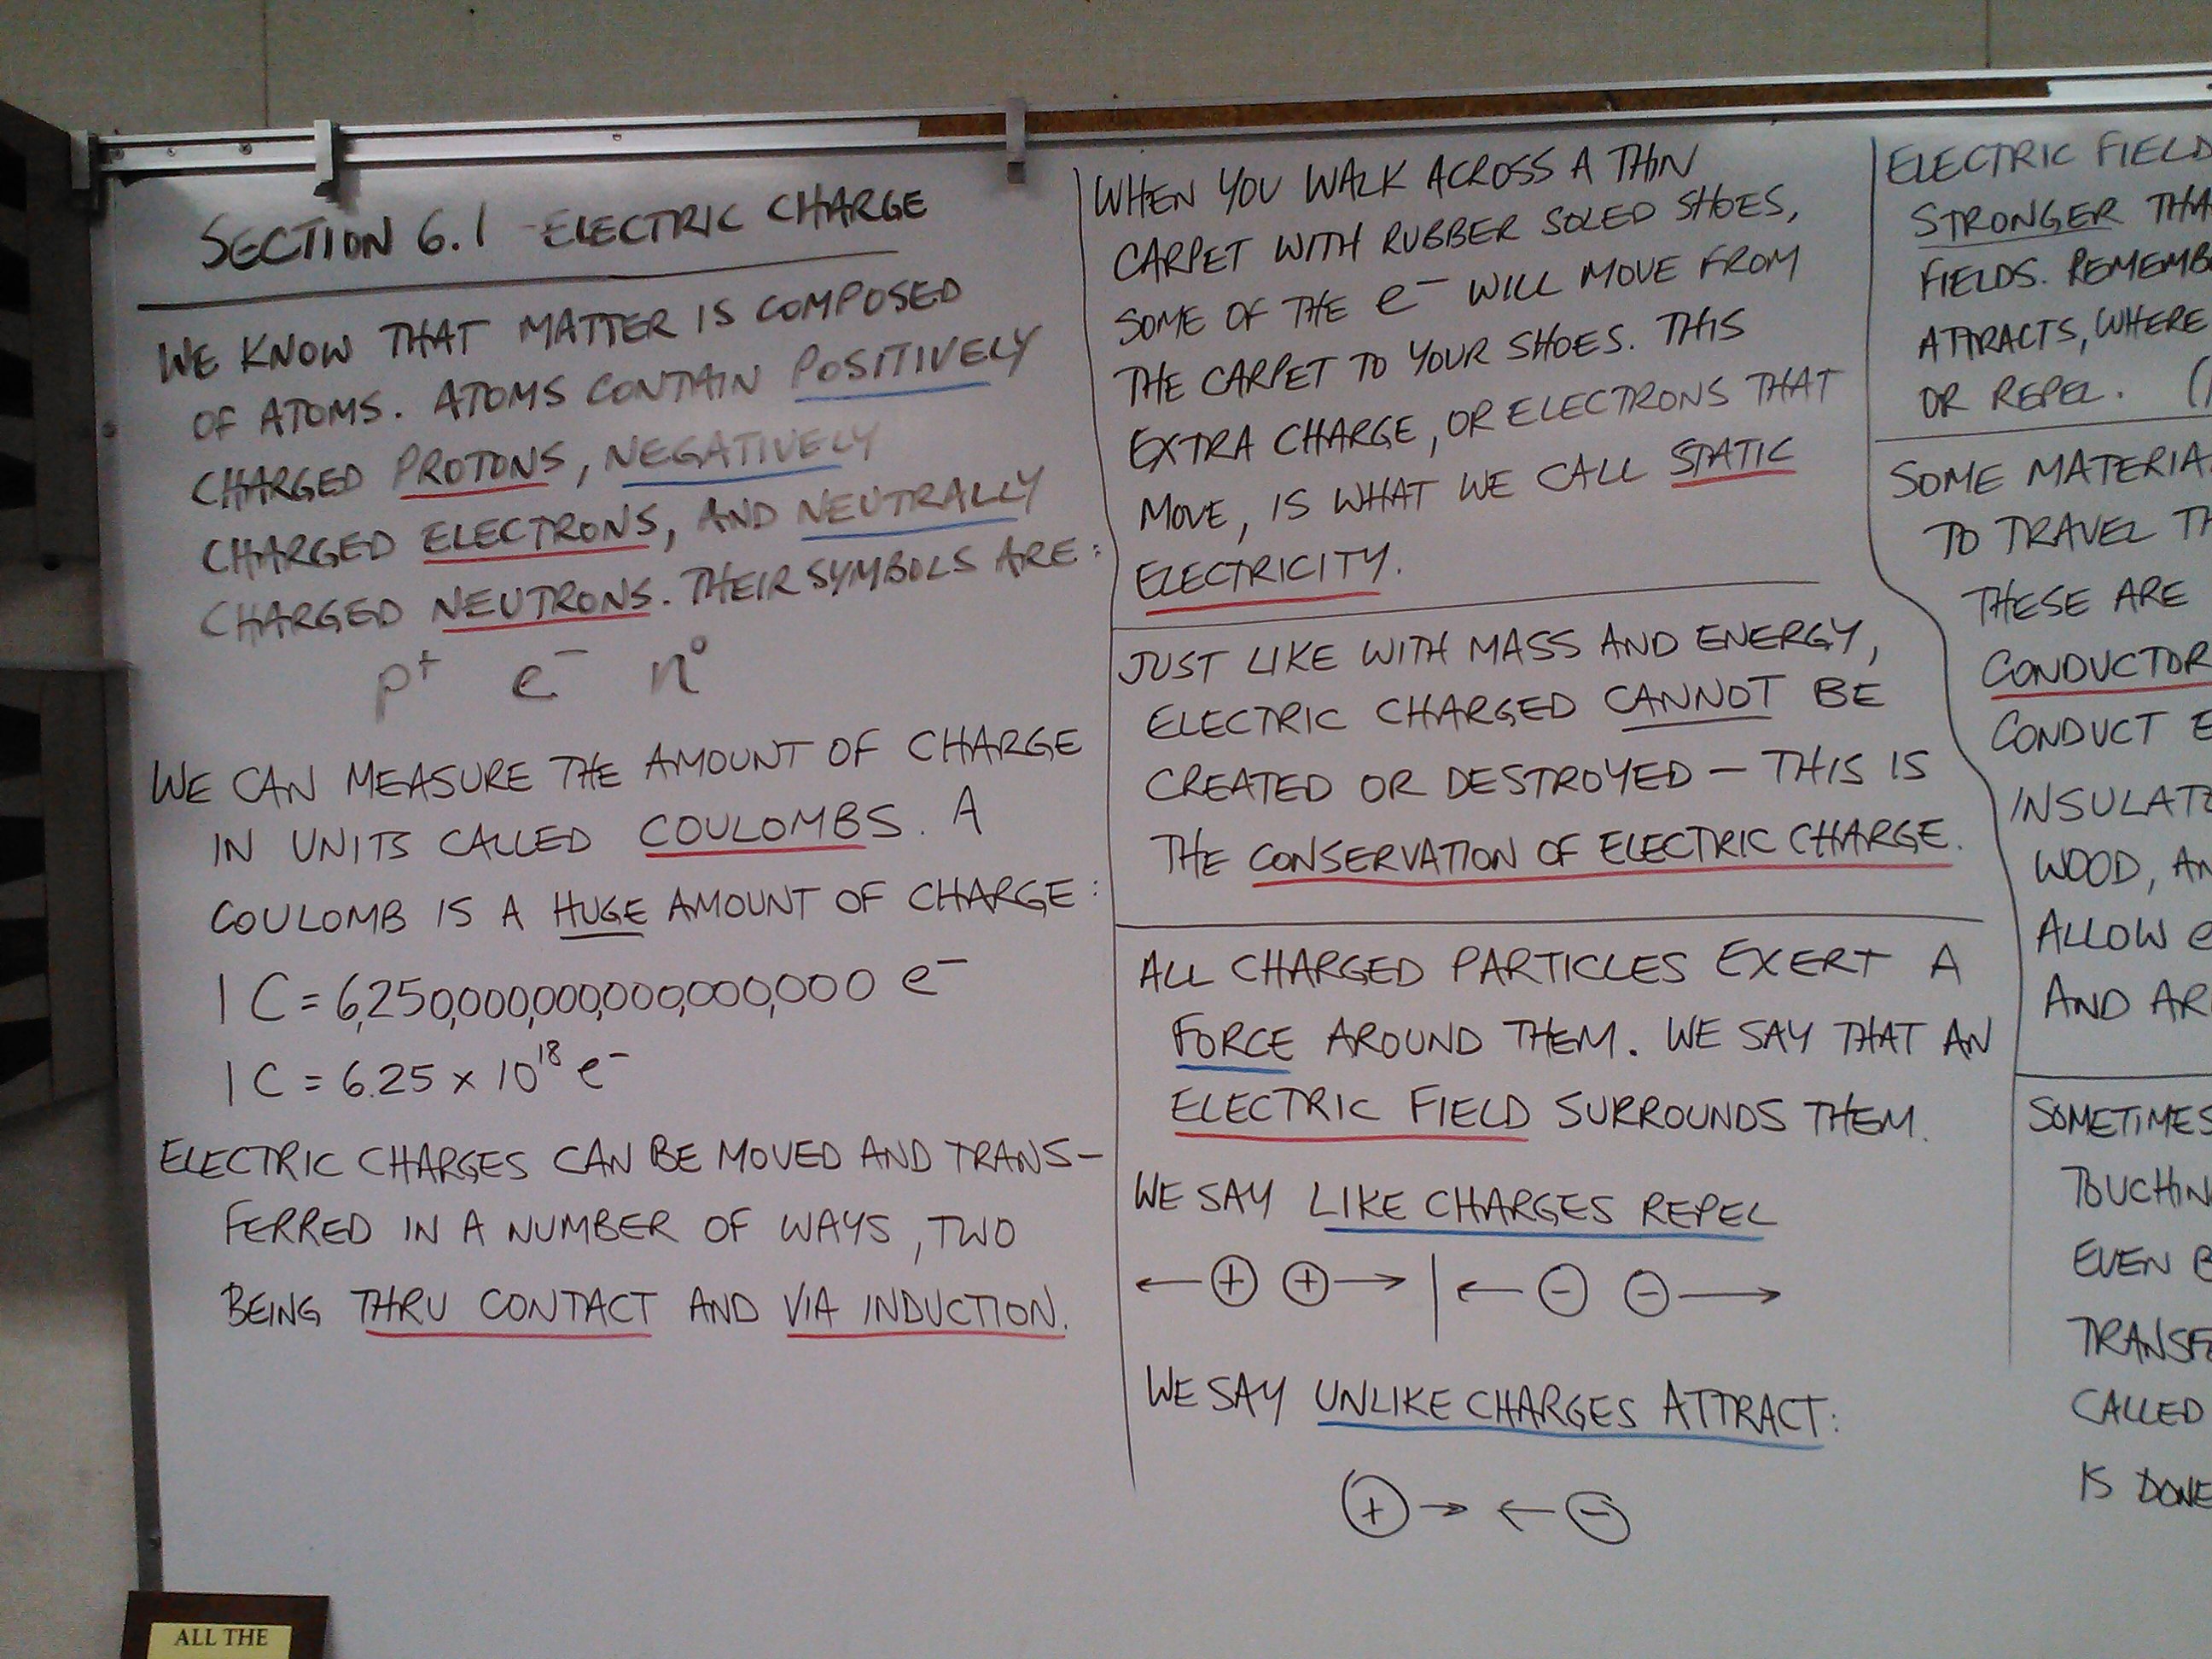 SECTION 6.1 ELECTRIC CHARGE
WE KNOW THAT MATTER IS COMPOSED
OF ATOMS. ATOMS CONTAIN POSITIVELY
CHARGED PROTONS, NEGATIVELY
CHARGED ELECTRONS, AND NEUTRALLY
CHARGED NEUTRONS. THEIR SYMBOLS ARE:
p⁺ e⁻ n⁰
WE CAN MEASURE THE AMOUNT OF CHARGE
IN UNITS CALLED COULOMBS. A
COULOMB IS A HUGE AMOUNT OF CHARGE:
1 C = 6,250,000,000,000,000,000 e⁻
1 C = 6.25 x 10¹⁸ e⁻
ELECTRIC CHARGES CAN BE MOVED AND TRANS-
FERRED IN A NUMBER OF WAYS, TWO
BEING THRU CONTACT AND VIA INDUCTION.
WHEN YOU WALK ACROSS A THIN
CARPET WITH RUBBER SOLED SHOES,
SOME OF THE e⁻ WILL MOVE FROM
THE CARPET TO YOUR SHOES. THIS
EXTRA CHARGE, OR ELECTRONS THAT
MOVE, IS WHAT WE CALL STATIC
ELECTRICITY.
JUST LIKE WITH MASS AND ENERGY,
ELECTRIC CHARGED CANNOT BE
CREATED OR DESTROYED — THIS IS
THE CONSERVATION OF ELECTRIC CHARGE.
ALL CHARGED PARTICLES EXERT A
FORCE AROUND THEM. WE SAY THAT AN
ELECTRIC FIELD SURROUNDS THEM.
WE SAY LIKE CHARGES REPEL
← + + → | ← − − →
WE SAY UNLIKE CHARGES ATTRACT:
+ → ← −
ELECTRIC FIELD
STRONGER THA
FIELDS. REMEMB
ATTRACTS, WHERE
OR REPEL. (
SOME MATERIA
TO TRAVEL TH
THESE ARE
CONDUCTOR
CONDUCT E
INSULAT
WOOD, AN
ALLOW e
AND AR
SOMETIMES
TOUCHIN
EVEN B
TRANSF
CALLED
IS DONE
ALL THE